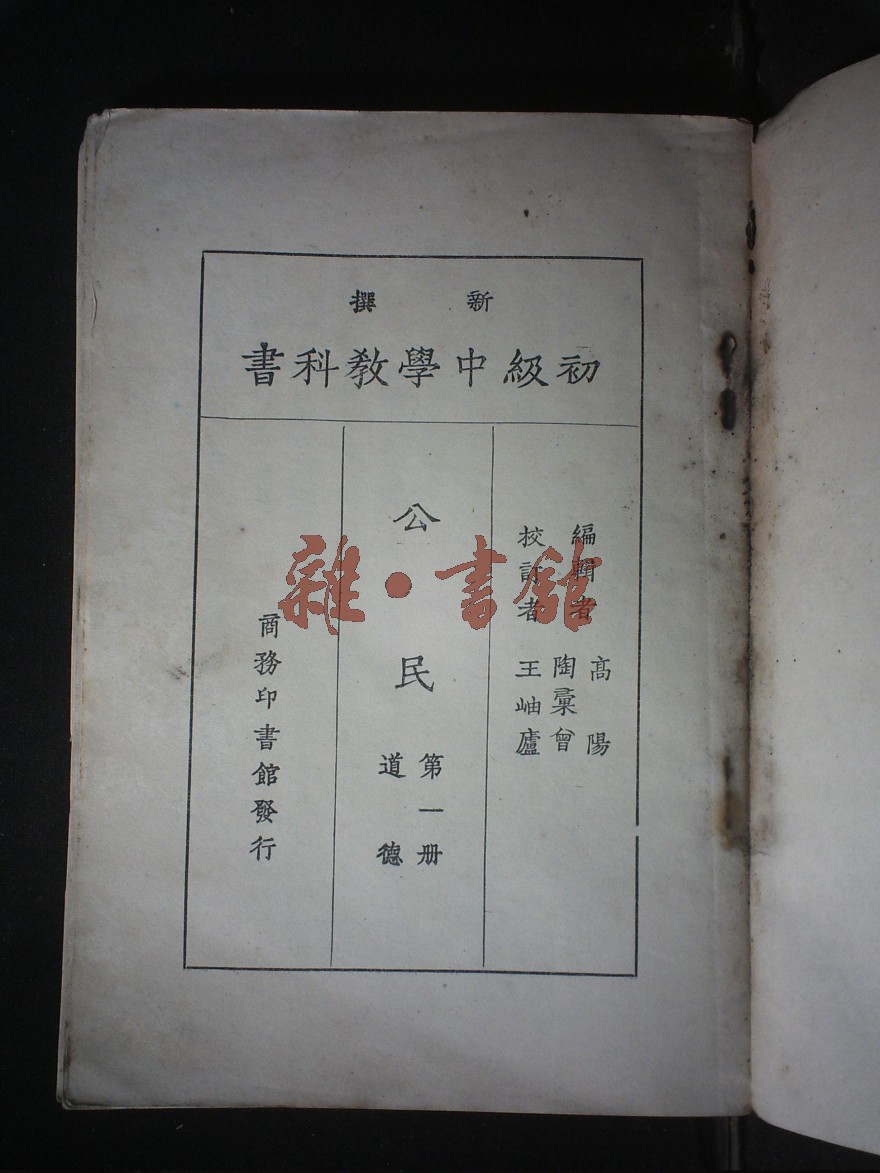 新撰
初級中學教科書
編輯者 高陽
陶彙曾
校訂者 王岫廬
公民
第一册
道德
商務印書館發行
雜·書館